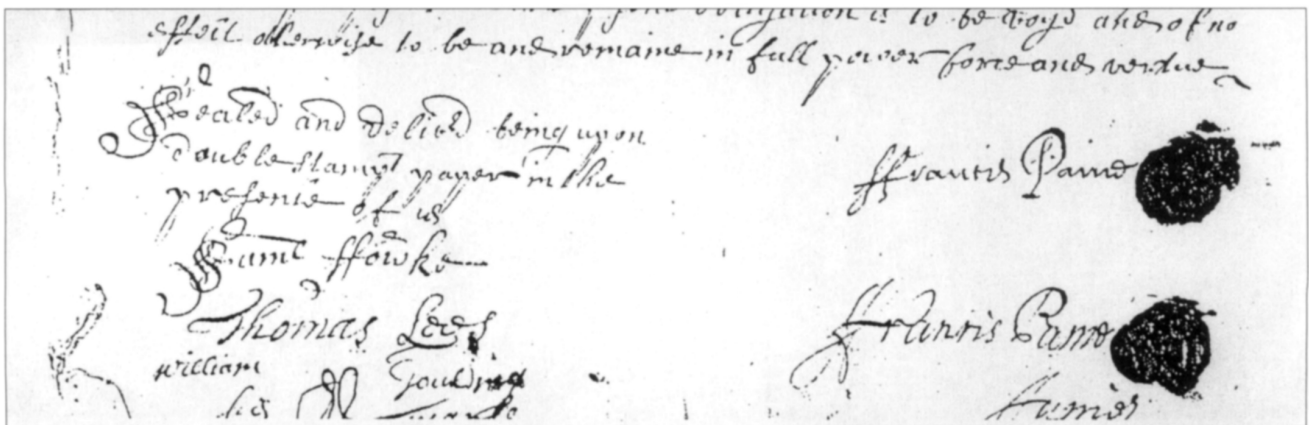 obligation is to be voyd and of no
effect otherwise to be and remaine in full power force and vertue
Sealed and delivd being upon
double stampt paper in the
presence of us
Saml ffowke
Thomas Lees
William
his
ffrancis Paine
ffrancis Paine
Juniör